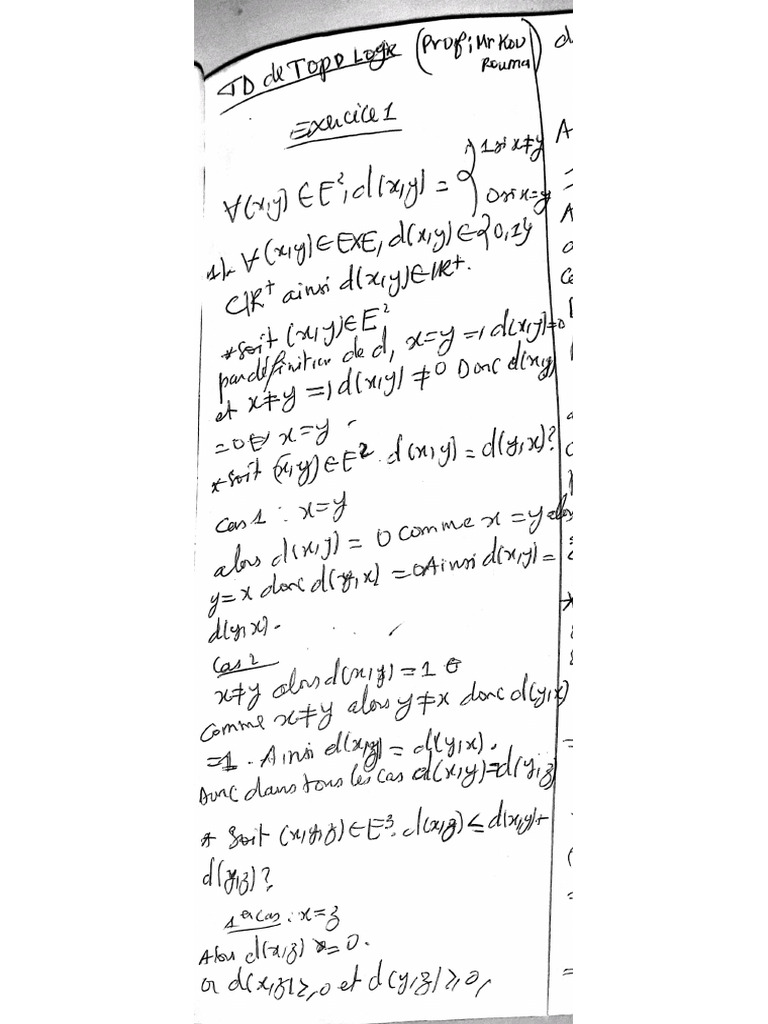 TD de TOPOLOGIE (Prof: Mr Kou
Rouma)
Exercice 1
∀(x,y) ∈ E², d(x,y) = { 1 si x≠y
0 si x=y
1). ∀(x,y) ∈ E×E, d(x,y) ∈ {0,1}
⊂ ℝ⁺ ainsi d(x,y) ∈ ℝ⁺.
* Soit (x,y) ∈ E²
par définition de d, x=y ⇒ d(x,y)=0
et x≠y ⇒ d(x,y) ≠ 0 Donc d(x,y)
=0 ⇔ x=y.
* Soit (x,y) ∈ E². d(x,y) = d(y,x)?
Cas 1 : x=y
alors d(x,y) = 0 comme x = y alors
y=x donc d(y,x) = 0 Ainsi d(x,y) =
d(y,x).
Cas 2
x≠y alors d(x,y) = 1
Comme x≠y alors y≠x donc d(y,x)
=1. Ainsi d(x,y) = d(y,x).
Donc dans tous les cas d(x,y)=d(y,x)
* Soit (x,y,z) ∈ E³. d(x,z) ≤ d(x,y)+
d(y,z)?
1er cas : x=z
Alors d(x,z) = 0.
or d(x,z) ≥ 0 et d(y,z) ≥ 0,